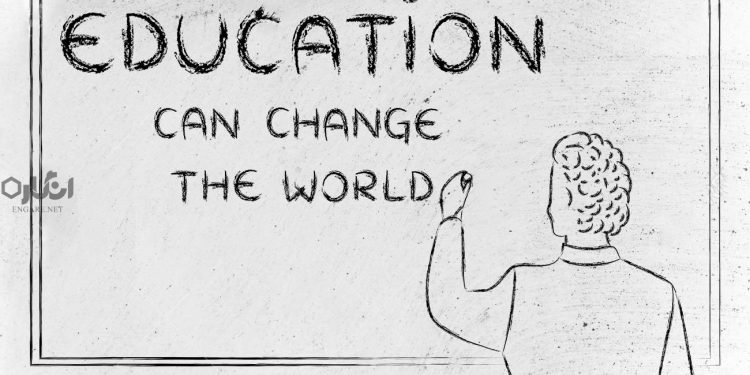 EDUCATION
CAN CHANGE
THE WORLD
انگاره
ENGARE.NET